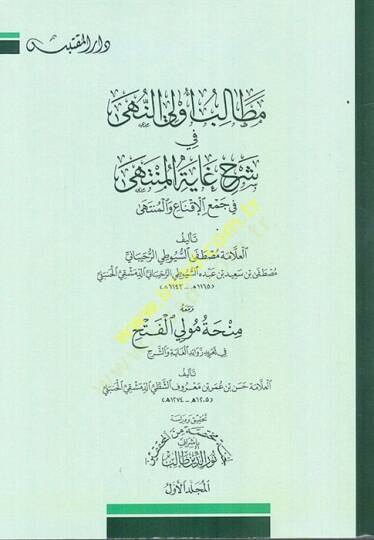 دار المقتبس
مطالب أولي النهى
في
شرح غاية المنتهى
في جمع الإقناع والمنتهى
تأليف
العلامة مصطفى السيوطي الرحيباني
مصطفى بن سعيد بن عبده السيوطي الرحيباني الدمشقي الحنبلي
ومعه
منحة مولي الفتح
في تجريد زوائد الغاية والشرح
تأليف
العلامة حسن بن عمر بن معروف الشطي الدمشقي الحنبلي
(١٢٠٥هـ - ١٢٧٤هـ)
تحقيق ودراسة
لجنة مختصة من المحققين
بإشراف
نور الدين طالب
المجلد الأول